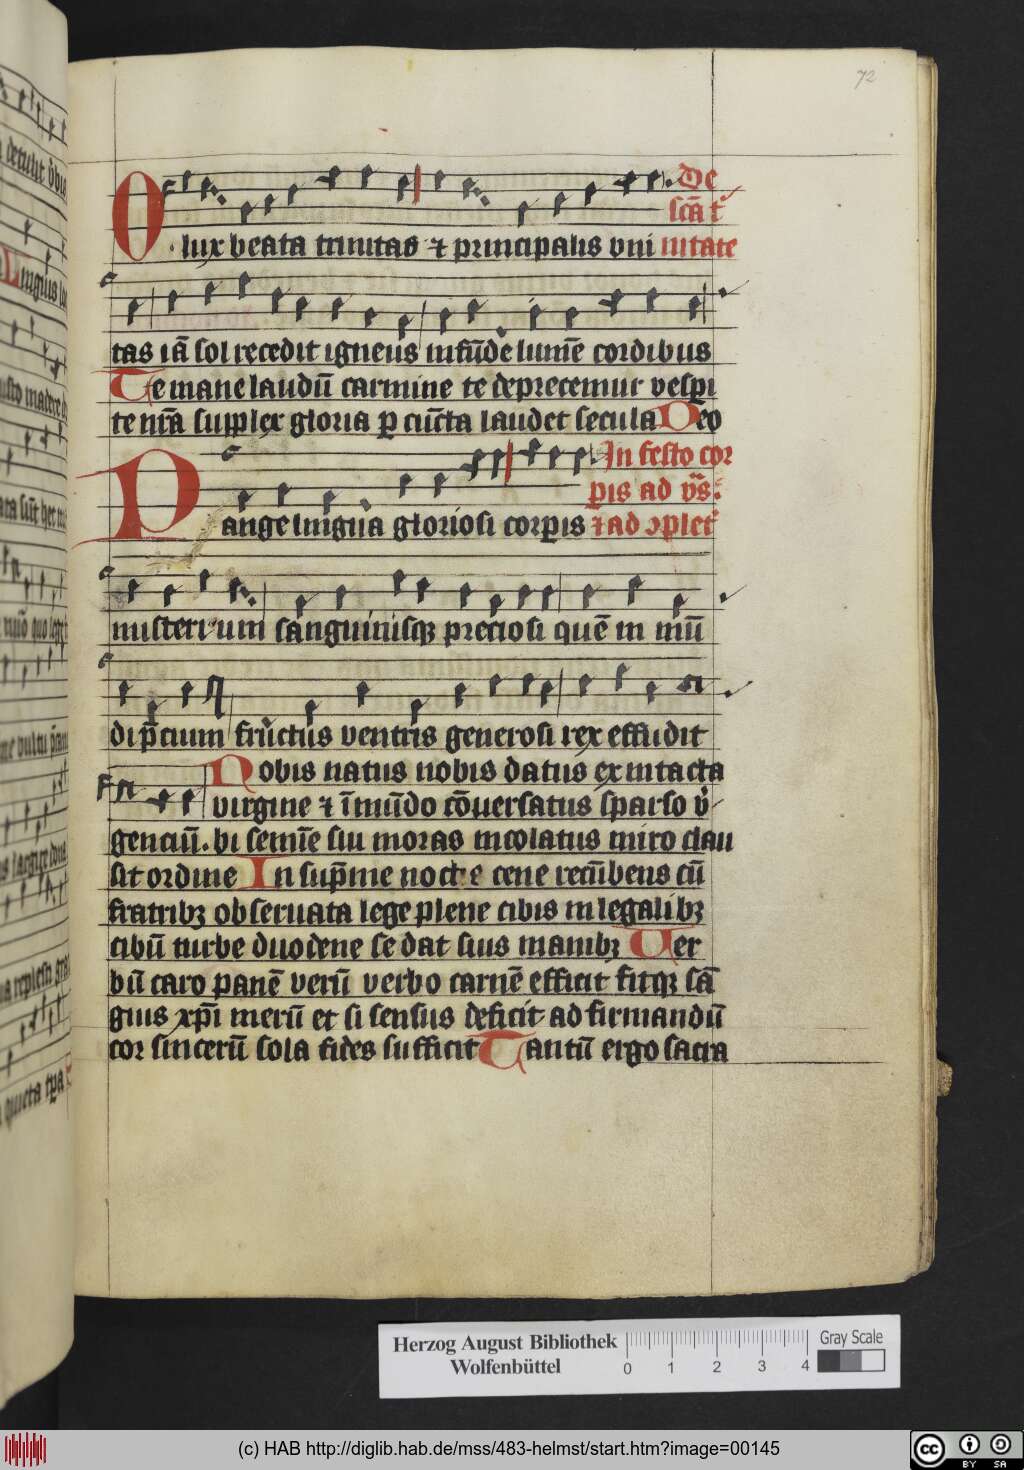 72
De
scā t͛
O lux beata trinitas ⁊ principalis vni nitate
tas iā sol recedit igneus infūde lumē cordibus
Te mane laudū carmine te deprecemur vespi
te nrā supplex gloria ꝑ cūcta laudet secula Deo
In festo cor
ꝑis ad vs̄:
Pange lingua gloriosi corꝑis ⁊ ad ↄplet͛
misterium sanguinisqꝫ preciosi quē in mūͤ
dip̄cium fructus ventris generosi rex effudit
Nobis natus nobis datus ex intacta
virgine ⁊ īmūdo cōuersatus sparso v̓
genciū. bi semīe sui moras incolatus miro clau
sit ordine In sup̄me nocte cene recūbens cū
fratribꝫ obseruata lege plene cibis in legalibꝫ
cibū turbe duodene se dat suis manibꝫ Uer
bū caro panē verū verbo carnē efficit fitqꝫ sā
guis xp̄i merū et si sensus deficit ad firmandū
cor sincerū sola fides sufficit Tantū ergo sacra
Herzog August Bibliothek
Wolfenbüttel
0 1 2 3 4
Gray Scale
(c) HAB http://diglib.hab.de/mss/483-helmst/start.htm?image=00145
cc BY SA